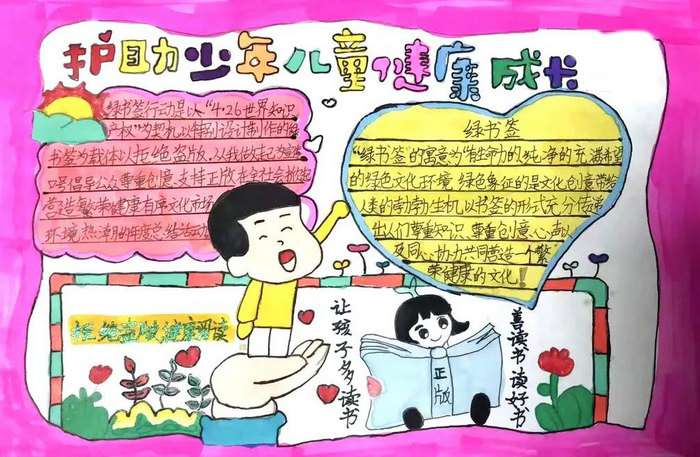 护助少年儿童健康成长
绿书签行动是以"4·26世界知识
产权"为契机以特别设计制作的绿
书签为载体以拒绝盗版,从我做起为宣传
口号倡导公众尊重创意,支持正版在全社会掀起
营造繁荣健康有序文化市场
环境热潮的年度总结活动
绿书签
"绿书签的寓意为"有生命力的,纯净的充满希望
的绿色文化环境绿色象征的是文化创意带给
人类的勃勃生机以书签的形式充分传递
出人们尊重知识尊重创意心声以
及同心协力共同营造一个繁
荣健康的文化!
拒绝盗版,健康阅读
让孩子多读书
正版
善读书读好书